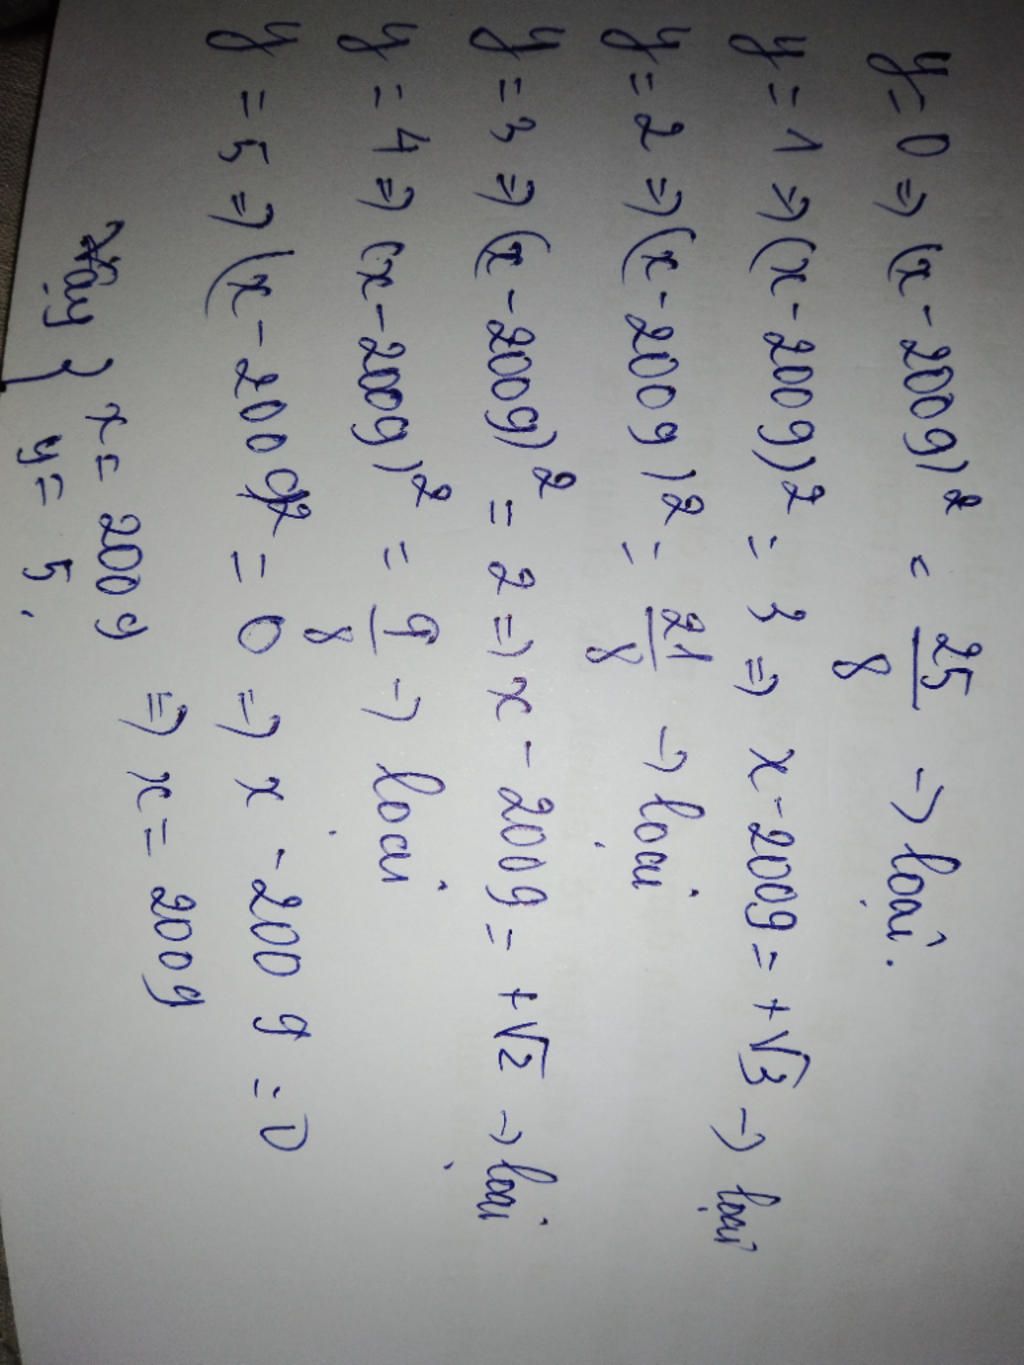 y=0 => (x-2009)² = 25/8 -> loại.
y=1 => (x-2009)² = 3 => x-2009 = +√3 -> loại
y=2 => (x-2009)² = 21/8 -> loại
y=3 => (x-2009)² = 2 => x-2009 = +√2 -> loại
y=4 => (x-2009)² = 9/8 -> loại
y=5 => (x-2009)² = 0 => x-2009 = 0
=> x = 2009
Vậy } x = 2009
y = 5.